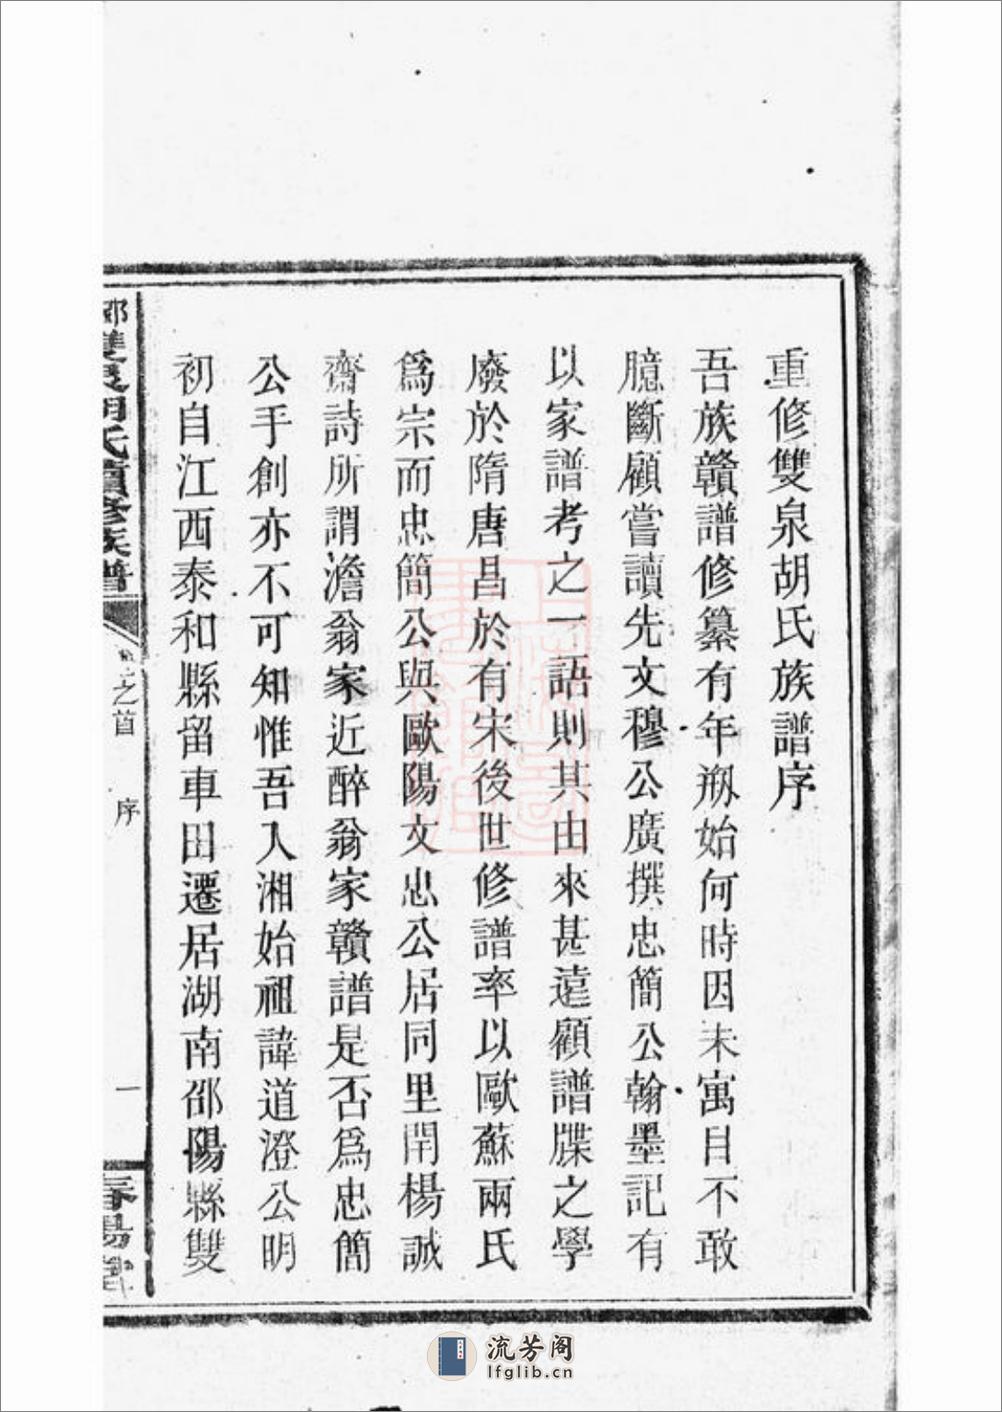 重修雙泉胡氏族譜序
吾族贛譜修纂有年剏始何時因未寓目不敢
臆斷顧嘗讀先文穆公廣撰忠簡公翰墨記有
以家譜考之一語則其由來甚遠顧譜牒之學
廢於隋唐昌於有宋後世修譜率以歐蘇兩氏
爲宗而忠簡公與歐陽文忠公居同里閈楊誠
齋詩所謂澹翁家近醉翁家贛譜是否爲忠簡
公手創亦不可知惟吾入湘始祖諱道澄公明
初自江西泰和縣留車田遷居湖南邵陽縣雙
邵雙泉胡氏續修族譜
之首 序 一 春陽堂
流芳阁
lfglib.cn